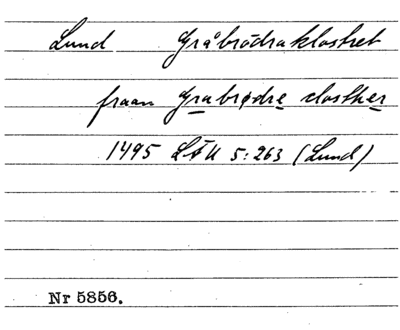 Lund Gråbrödraklostret
fraan Grabrødre closther
1495 LÄU 5:263 (Lund)
Nr 5856.